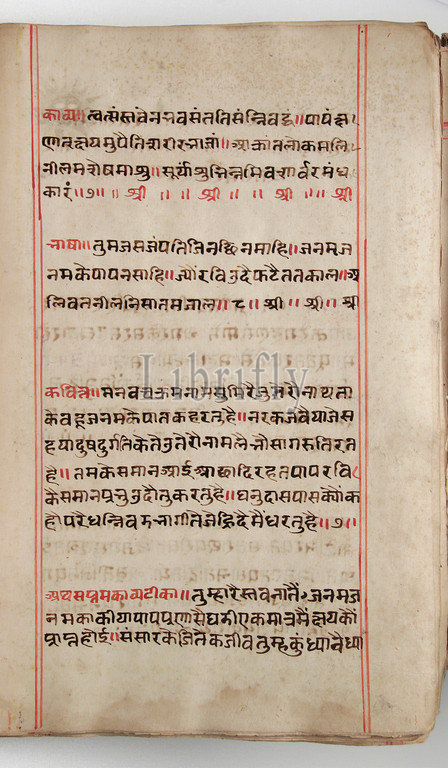 काव्य॥ त्वत्संस्तवेन नवसंततिसन्निबद्धं॥ पापं क्ष
णात्क्षयमुपैतिशरीरभाजां॥ आक्रांतलोकमलि
नीलमशेषमाशु॥ सूर्यांशुभिन्नमिवशार्वरमंध
कारं॥७॥ श्री ॥ ॥ श्री ॥ ॥ श्री ॥ श्री
भाषा॥ तुमजसजंपतिजिनछिनमाहि॥ जनमज
नमकेपापनसाहि॥ ज्यौंरविउदैफटैततकाल॥ अ
लिवतनीलनिसातमजाल॥८॥ श्री ॥ श्री ॥ श्री
Librifly
कवित्त॥ मनवचक्रमनामसुमिरैजुतेरोनाथता
केबहुजनमकेपातकहरतुहै॥ नरकजवैयाजेस
हैं॥ तमकेसमानआईआछादिरहतपापरवि
कैसमानप्रभुउदौतुकरतुहै॥ धनुदासपासक्यौंक
हौपरैधन्निवहनागीतेजेहिदैमैंधरतुहै॥७॥
अथसप्तमकाव्यटीका॥ तुम्हारैस्तवनातैं जनमज
नमकाकीयापापप्रणासैघडीएकमात्रमैंक्षयकौं
प्राप्तहोई॥ संसारकेजितैकजीवतुम्हकुंध्यावैध्या